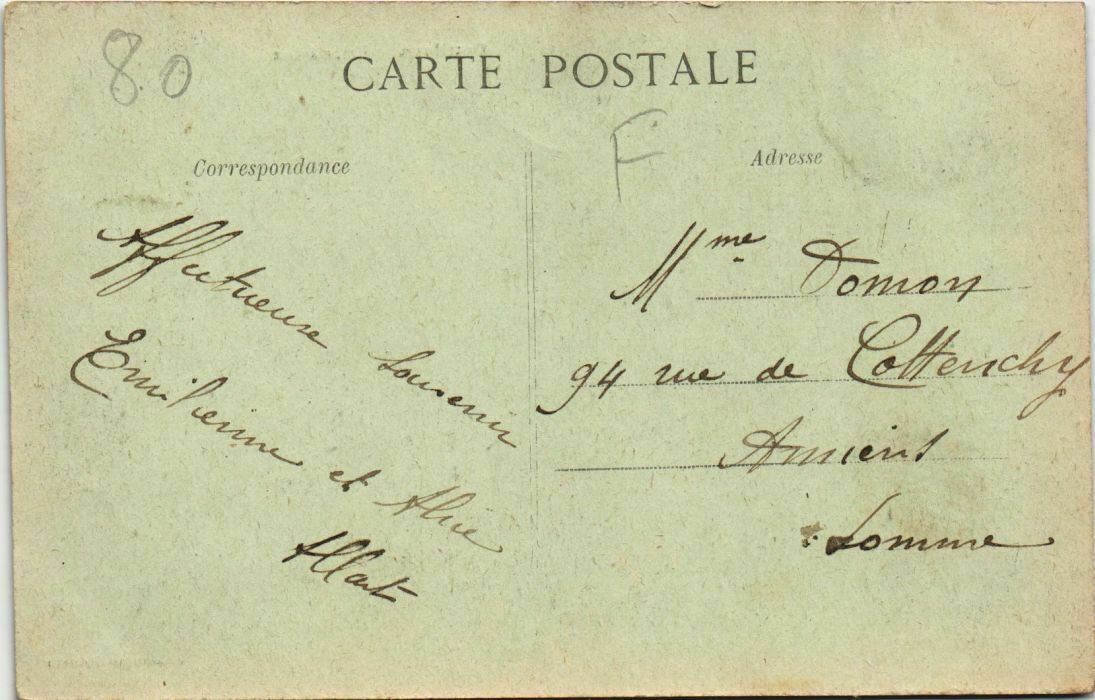 80
CARTE POSTALE
F
Correspondance
Affectueux Souvenir
Emilienne et Alice
Allart
Adresse
Mme Domon
94 rue de Cottenchy
Amiens
Somme